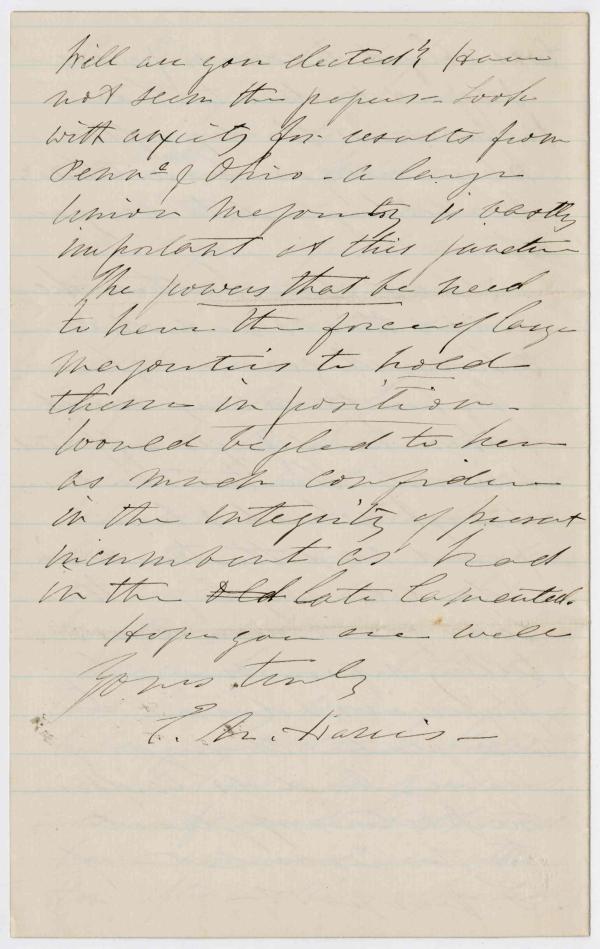 Well are you elected? Have
not seen the papers – Look
with anxiety for results from
Penna & Ohio – a large
Union majority is vastly
important at this juncture
The powers that be need
to have the force of large
majorities to hold
them in position –
Would be glad to have
as much confidence
in the integrity of present
incumbent as had
in the old late lamented.
Hope you are well
Yours truly
Harris –